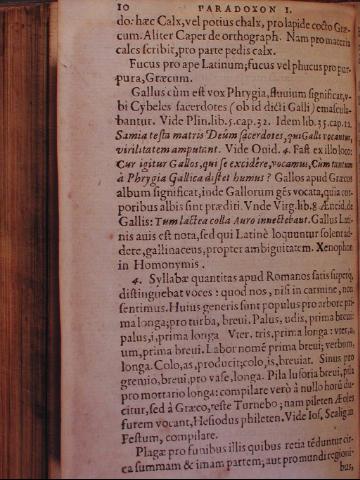 10 PARADOXON I.
do: hæc Calx, vel potius chalx, pro lapide cocto Græ-
cum. Aliter Caper de orthograph. Nam pro materia
calcs scribit, pro parte pedis calx.
Fucus pro ape Latinum; fucus vel phucus pro pur-
pura, Græcum.
Gallus cùm est vox Phrygia, fluuium significat, v-
bi Cybeles sacerdotes (ob id dicti Galli) emascula-
bantur. Vide Plin. lib. 5. cap. 32. Idem lib. 35. cap. 12.
Samia testa matris Deûm sacerdotes, qui Galli vocantur,
virilitatem amputant. Vide Ouid. 4. Fast. ex illo loco:
Cur igitur Gallos, qui se excidêre, vocamus, Cum tantum
à Phrygia Gallica distet humus? Gallos apud Græcos
album significat, inde Gallorum gēs vocata, quia cor-
poribus albis sunt præditi. Vnde Virg. lib. 8 Æneid. de
Gallis: Tum lactea colla Auro innectebant. Gallus Lati-
nis auis est nota, sed qui Latinè loquuntur solent ad-
dere, gallinaceus, propter ambiguitatem. Xenophon
in Homonymis.
4. Syllabæ quantitas apud Romanos satis superq;
distinguebat voces: quod nos, nisi in carmine, non
sentimus. Huius generis sunt populus pro arbore pri-
ma longa; pro turba, breui. Palus, udis, prima breui:
palus, i, prima longa Vter. tris, prima longa: vter, a,
um, prima breui. Labor nomē prima breui; verbum,
longa. Colo, as, producit; colo, is, breuiat. Sinus pro
gremio, breui, pro vase, longa. Pila lusoria breui, pila
pro mortario longa: compilare verò à nullo horū du-
citur, sed à Græco, teste Turnebo; nam pileten Æoles
furem vocant, Hesiodus phileten. Vide Ios. Scalig. ad
Festum, compilare.
Plagæ pro funibus illis quibus retia tēduntur cir-
ca summam & imam partem; aut pro mundi regioni-
bus,